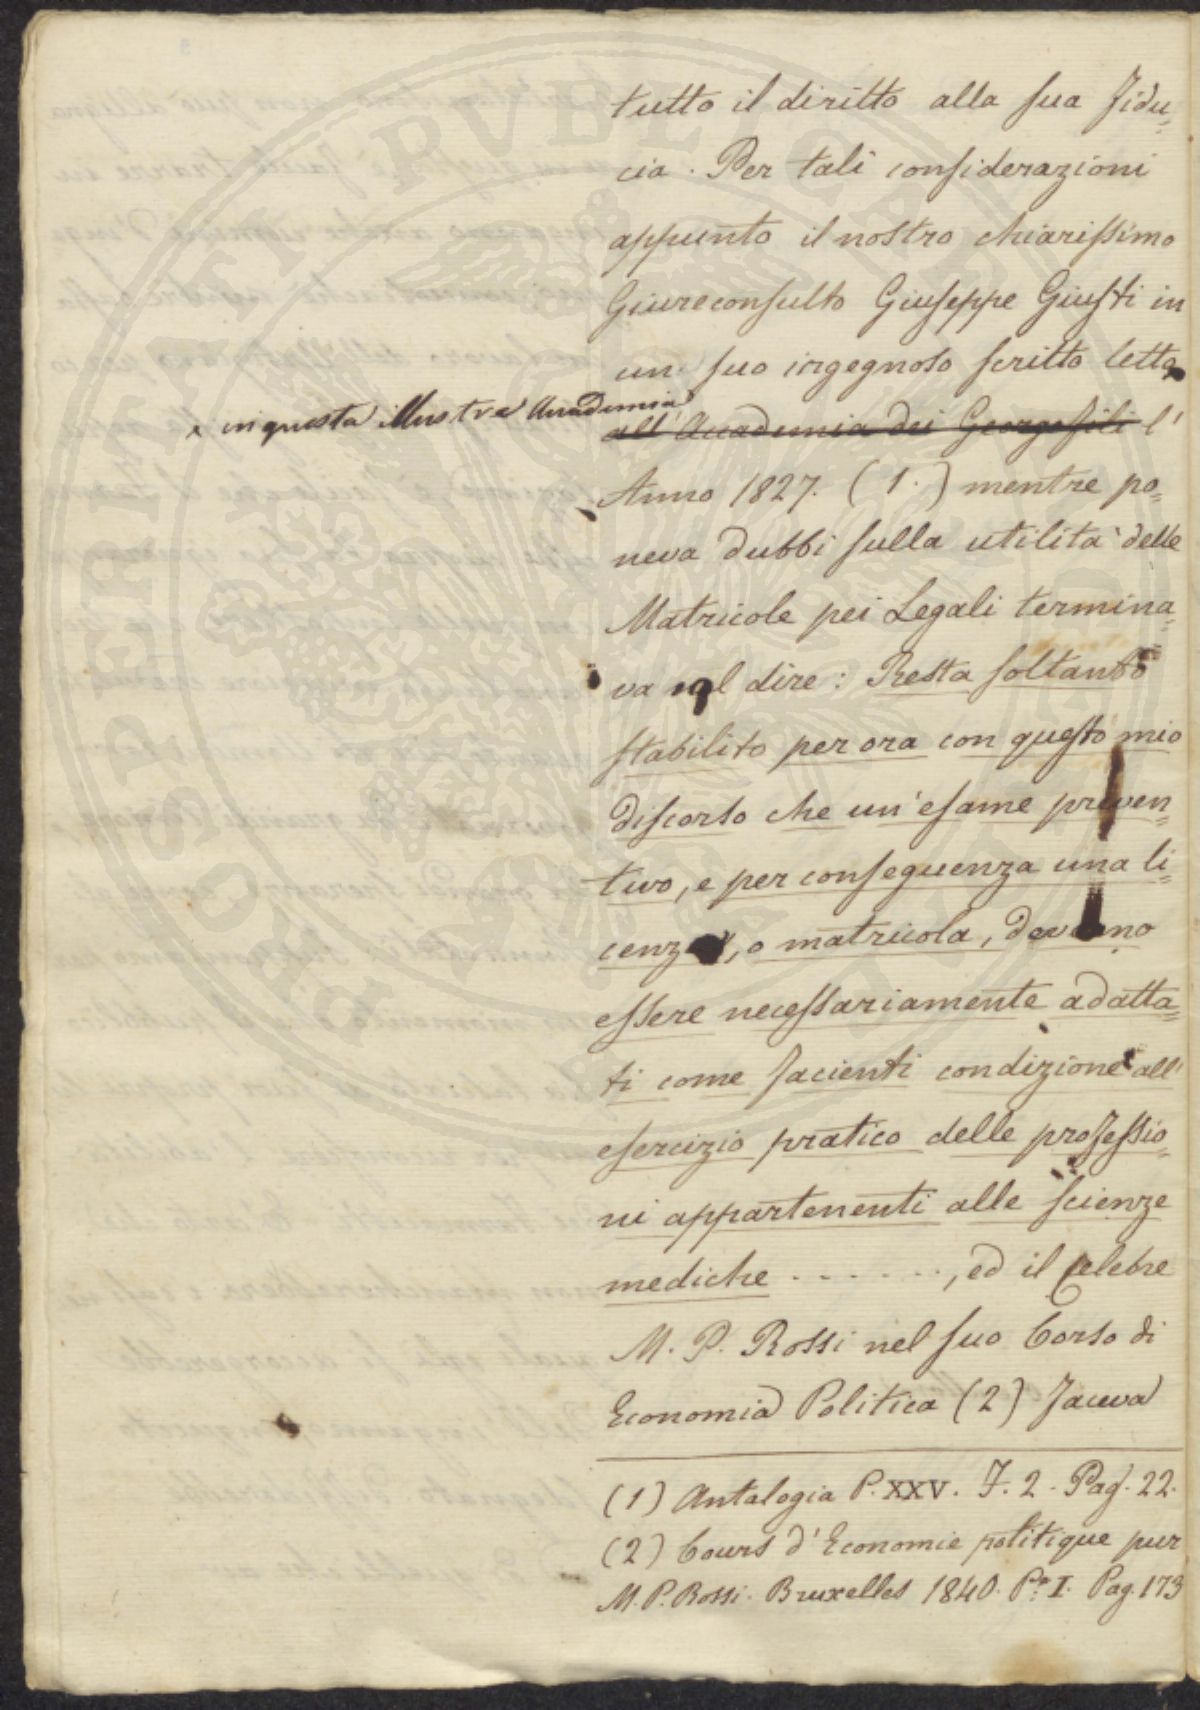 tutto il diritto alla sua Fidu=
cia. Per tali considerazioni
appunto il nostro chiarissimo
Giureconsulto Giuseppe Giusti in
un suo ingegnoso scritto letto
in questa illustre Accademia
all'Accademia dei Georgofili l'
Anno 1827. (1.) mentre po=
neva dubbi sulla utilità delle
Matricole pei Legali termina=
va col dire: Resta soltanto
stabilito per ora con questo mio
discorso che un'esame preven=
tivo, e per conseguenza una li=
cenza, o matricola, devono
essere necessariamente adatta=
ti come facienti condizione all'
esercizio pratico delle professio=
ni appartenenti alle scienze
mediche . . . . . . ., ed il celebre
M. P. Rossi nel suo Corso di
Economia Politica (2) Faceva
(1) Antalogia P. XXV. F. 2. Pag. 22.
(2) Cours d'Economie politique pur
M. P. Rossi. Bruxelles 1840. Pe. I. Pag. 173
PROSPERITATI PVBLICAE